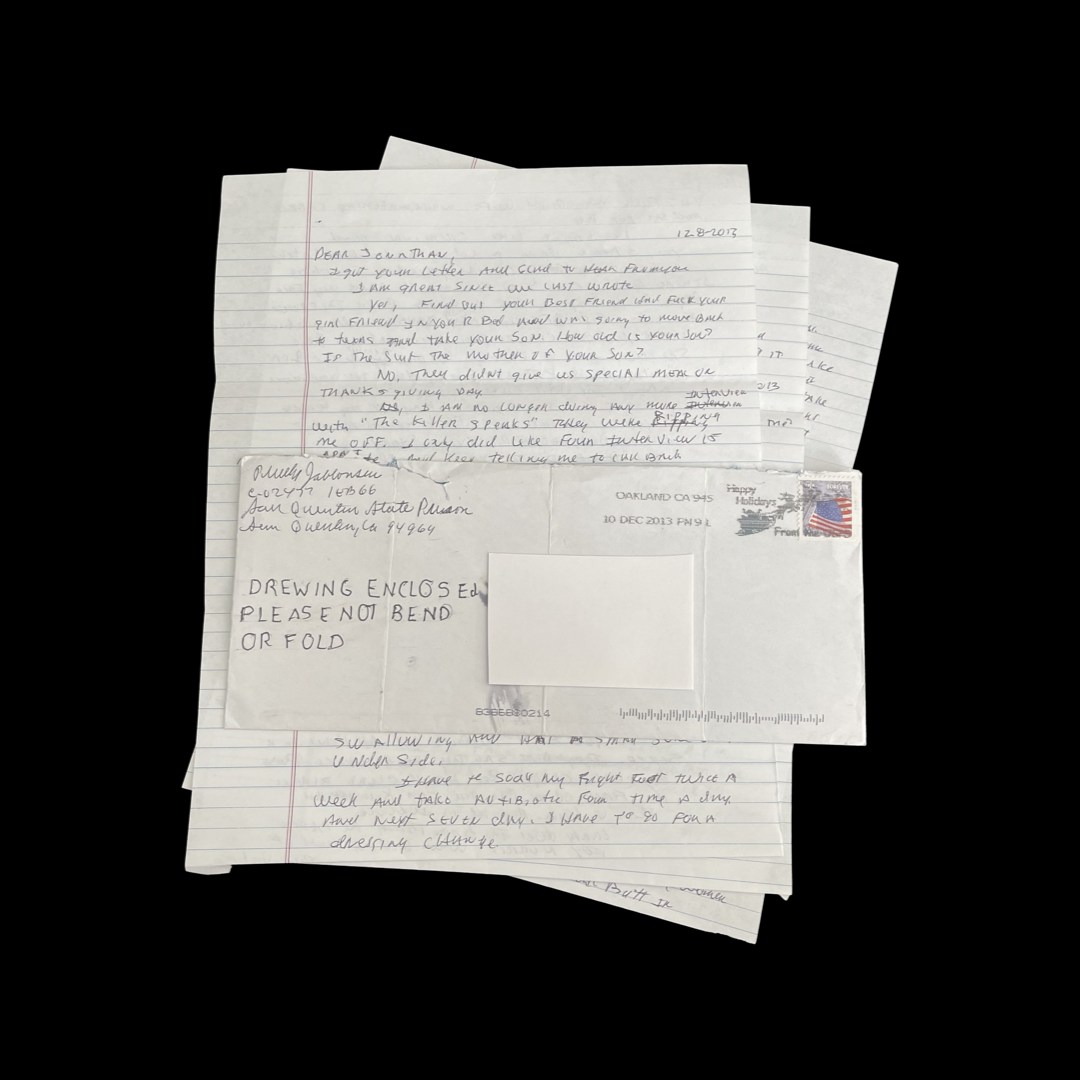 12-8-2013
DEAR JONATHAN,
I got your Letter And Glad to Hear From you
I am great Since we last wrote
Yes, Find out your Best Friend had Fuck your
girl Friend in YOUR Bed And was going to move Back
to texas And take your SON. How old is your Son?
Is the Slut the mother OF your SON?
NO, They didnt give us special meal on
THANKS giving DAY
I am no Longer doing Any more Interview
with "The Killer Speaks" They were RIPPING
me OFF. I only did like Four Interview IS
And Keep telling me to call Back
IT
2013
me?
Phillip Jablonski
C-02477 1EB66
San Quentin State Prison
San Quentin, Ca 94964
OAKLAND CA 945
10 DEC 2013 PM 9 L
Happy
Holidays
From
FOREVER
DREWING ENCLOSEd
PLEASE NOT BEND
OR FOLD
SWALLOWING AND
UNDER Side.
I Have to Soak my Right Foot twice A
week And take Antibiotic Four time A day.
And next seven day. I Have To go For A
dressing CHANGE
women
Butt In